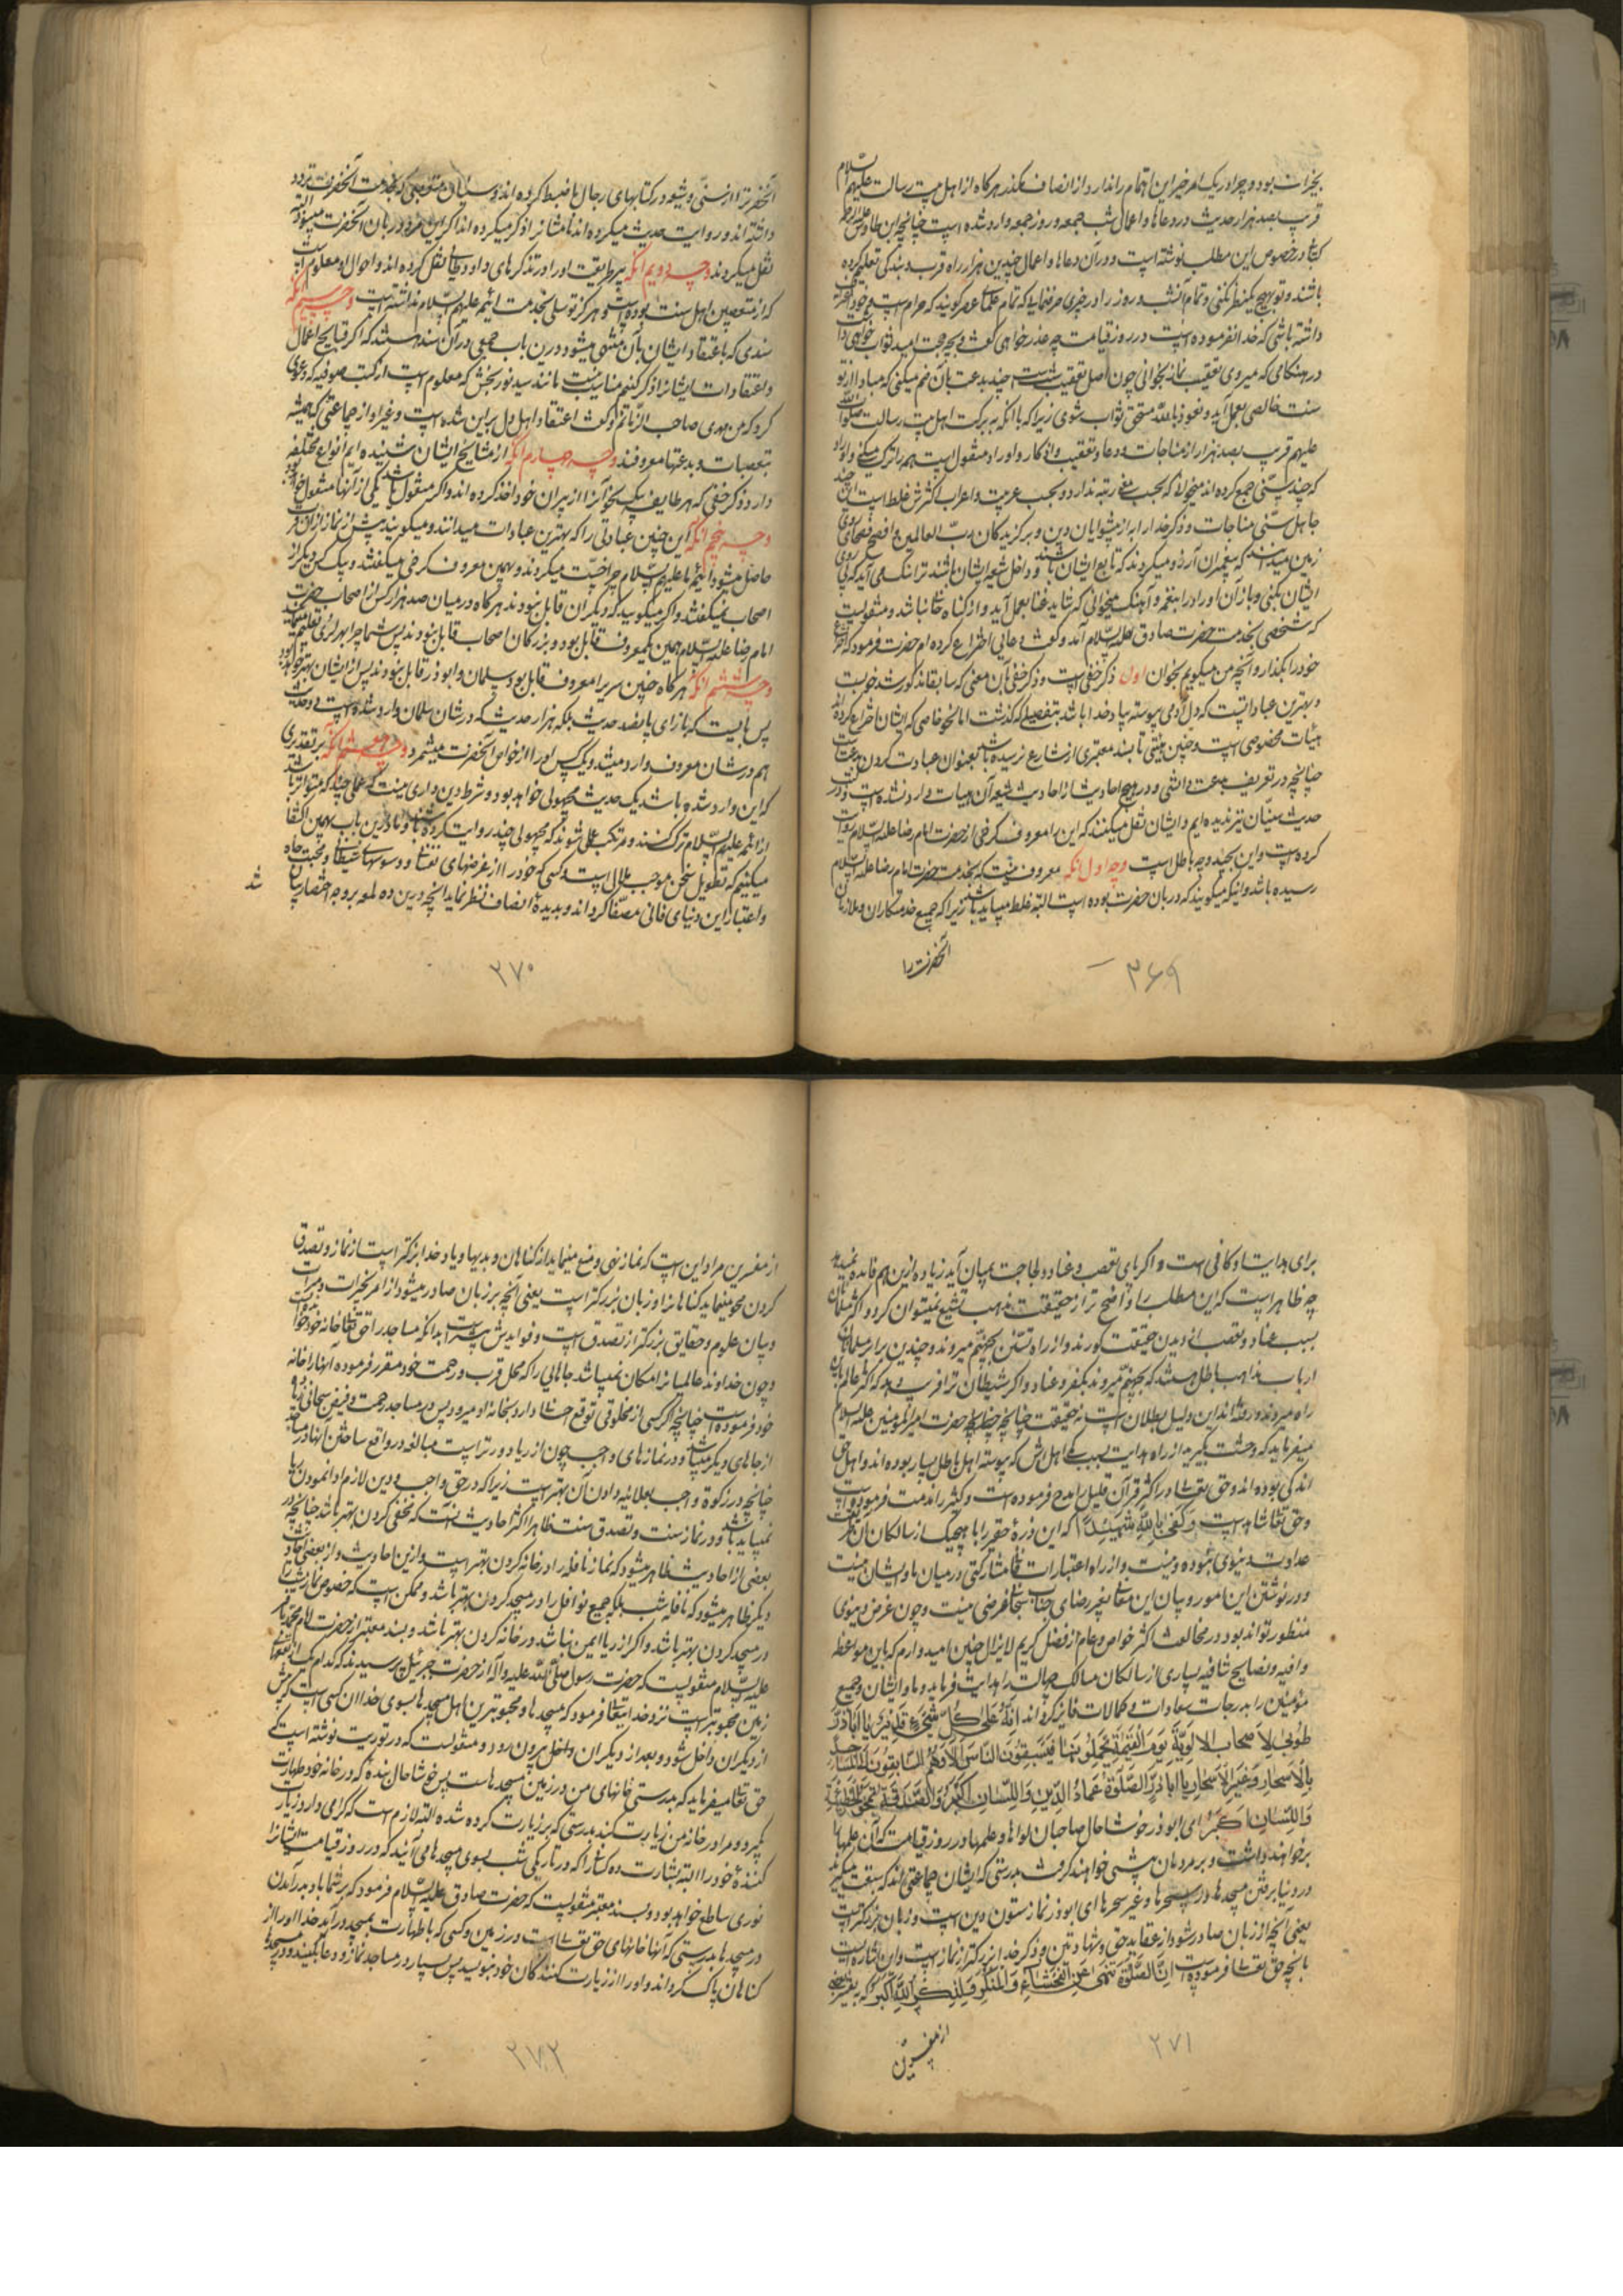 بخیرات بود و چرا در یک امر خیر این اهتمام را ندارد از انصاف مگذر هرگاه از اهل بیت رسالت علیهم السلام
قریب بصد هزار حدیث در دعاها و اعمال شب جمعه و روز جمعه وارد شده است چنانچه ابن طاوس علیه الرحمه
کتاب در خصوص این مطلب نوشته است و در آن دعاها و اعمال چندین هزار راه قرب و بندگی تعلیم کرده
باشند و تو بهیچ یک نظر نکنی و تمام آن شب و روز را در چیزی صرف نمایی که تمام علمای عصر گویند که حرام است و خود
داشته باشی که خدا نفرموده است در روز قیامت چه عذر خواهی گفت و بچه حجت امید ثواب خواهی داشت
در هنگامی که میروی تعقیب نماز بخوانی چون اصل تعقیب سنت است چند بدعت بآن ضم میکنی که مبادا از تو
سنت خالصی بعمل آید و نعوذ بالله مستحق ثواب شوی زیرا که با آنکه ببرکت اهل بیت رسالت صلوات الله
علیهم قریب بصد هزار از مناجات و دعا و تعقیب و اذکار و اوراد منقول است همه را ترک میکنی و اوراد
که چند سنّی جمع کرده اند میخوانی که بحسب معنی رتبه ندارد و بحسب عربیت و اعراب اکثرش غلط است این چند
جاهل سنّی مناجات و ذکر خدا را به از پیشوایان دین و برگزیدگان ربّ العالمین و افصح فصحای روی
زمین میدانند که پیغمبران آرزو میکردند که تابع ایشان باشند و داخل شیعه ایشان باشند ترا ننگ می آید که پیروی
ایشان بکنی و باز آن اوراد را بنغمه و آهنگ میخوانی که شاید غنا بعمل آید و از گناه خالی نباشد و منقولست
که شخصی بخدمت حضرت صادق علیه السلام آمد و گفت دعایی اختراع کرده ام حضرت فرمود که اختراع
خود را بگذار و آنچه من میگویم بخوان اول ذکر خفی است و ذکر خفی بآن معنی که سابقا مذکور شد خوبست
و بهترین عبادات است که دل آدمی پیوسته بیاد خدا باشد بتفصیلی که گذشت اما نحو خاصی که ایشان اختراع کرده اند
هیئات مخصوصی است و چنین هیئتی تا بسند معتبری از شارع نرسیده باشد بعنوان عبادت کردن بدعت است
چنانچه در تعریف بدعت دانستی و در هیچ حدیث از احادیث شیعه آن هیئات وارد نشده است و در کتب
حدیث سنیّان نیز ندیده ایم و ایشان نقل میکنند که این را معروف کرخی از حضرت امام رضا علیه السلام روایت
کرده است و این بچند وجه باطل است وجه اول آنکه معروف نیست که بخدمت حضرت امام رضا علیه السلام
رسیده باشد و اینکه میگویند که دربان حضرت بوده است البته غلط میباید باشد زیرا که جمیع خدمتکاران و ملازمان
آنحضرت را
۳۶۹
آنحضرت را از سنّی و شیعه در کتابهای رجال ما ضبط کرده اند و سنیان متعصبی که بخدمت آنحضرت تردد
داشته اند و روایت حدیث میکرده اند نامشانرا ذکر میکرده اند اگر این مرد دربان آنحضرت میبود البته
نقل میکردند وجه دویم آنکه پیر طریقت او را در تذکرهای داود طائی نقل کرده اند و احوال او معلوم است
که از متعصبین اهل سنت بوده است و هرگز توسلی بخدمت ائمه علیهم السلام نداشته است وجه سیم آنکه
سندی که باعتقاد ایشان بآن منتهی میشود درین باب جمعی در آن سند هستند که اگر قبایح اعمال
و اعتقادات ایشانرا ذکر کنم مناسب نیست مانند سید نوربخش که معلوم است از کتب صوفیه که دعوی
کرد که من مهدی صاحب الزمانم و گفت اعتقاد اهل دل بر این شده است و غیر او از جماعتی که همیشه
بتعصبات و بدعتها معروفند وجه چهارم آنکه از مشایخ ایشان شنیده ایم انواع مختلفه
دارد ذکر خفی که هر طایفه یک نحو آنرا از پیران خود اخذ کرده اند و اگر منقول باشد یکی از آنها منقول خواهد بود
وجه پنجم آنکه این چنین عبادتی را که بهترین عبادات میدانند و میگویند پیش از نماز از آن قرب
حاصل میشود ائمه ما علیهم السلام چرا خسّت میکردند و بهمین معروف کرخی میگفتند و بیک کس دیگر از
اصحاب نمیگفتند و اگر میگویید که دیگران قابل نبودند هرگاه در میان صد هزار کس از اصحاب حضرت
امام رضا علیه السلام همین یک معروف قابل بود و بزرگان اصحاب قابل نبودند پس شما چرا بهر لری تعلیم میکنید
وجه ششم آنکه هرگاه چنین سر را معروف قابل بود و سلمان و ابوذر قابل نبودند پس از ایشان بهتر خواهد بود
پس بایست که بازای پانصد حدیث بلکه هزار حدیث که در شان سلمان وارد شده است دو حدیث
هم در شان معروف وارد میشد و یک کس او را از خواص آنحضرت میشمرد وجه هفتم آنکه بر تقدیری
که این وارد شده باشد یک حدیث مجهولی خواهد بود و شرط دین داری نیست که عملی چند که متواتر باشد
از ائمه علیهم السلام ترک کنند و مرتکب عملی شوند که مجهولی چند روایت کرده باشند و ما درین باب بهمین اکتفا
میکنیم که تطویل سخن موجب ملال است و کسی که خود را از غرضهای نفسانی و وسوسهای شیطانی و محبت جاه
و اعتبار این دنیای فانی مصفا گرداند و بدیدهٔ انصاف نظر نماید آنچه درین ده لمعه بر وجه اختصار بیان
شد
۳۷۰
برای هدایت او کافی است و اگر پای تعصب و عناد و لجاجت بمیان آید زیاده ازین هم فایده نمیدهد
چه ظاهر است که این مطلب را واضح تر از حقیقت مذهب تشیع نمیتوان کرد و اکثر عالمیان
بسبب عناد و تعصب از دیدن حقیقت کورند و از راه تسنّن بجهنّم میروند و چندین برابر مسلمانان
ارباب مذاهب باطل هستند که بجهنم میروند بکفر و عناد و اگر شیطان ترا فریب دهد که اکثر عالم باین
راه میروند و رفته اند این دلیل بطلان است نه حقیقت چنانچه حضرت امیرالمؤمنین علیه السلام
میفرماید که وحشت مگیرید از راه هدایت بسبب کمی اهلش که پیوسته اهل باطل بسیار بوده اند و اهل حق
اندکی بوده اند و حق تعالی در اکثر قرآن قلیل را مدح فرموده است و کثیر را مذمت فرموده است
و حق تعالی شاهد است وَکَفَی بِاللّهِ شَهِیداً که این ذرهٔ حقیر را با هیچیک از سالکان آن طریقت
عداوت دنیوی نبوده و نیست و از راه اعتبارات دنیا مشارکتی در میان ما و ایشان نیست
و در نوشتن این امور و بیان این معانی بغیر رضای جناب سبحانی غرضی نیست و چون غرض دنیوی
منظور تواند بود در مخالفت اکثر خواص و عام از فضل کریم لا یزال چنین امیدوارم که باین مواعظ
وافیه و نصایح شافیه بسیاری از سالکان مسالک جهالت را هدایت فرماید و ما و ایشان و جمیع
مؤمنین را بدرجات سعادات و کمالات فایز گرداند اِنَّهُ عَلی کُلِّ شَیءٍ قَدِیر یَا اَبَاذَرٍّ
طُوبَی لِاَصحَابِ الاَلوِیَةِ یَومَ القِیَمَةِ یَحمِلُونَهَا فَیَسبِقُونَ النَّاسَ اَلا وَهُمُ السَّابِقُونَ اِلَی المَسَاجِدِ
بِالاَسحَارِ وَغَیرِ الاَسحَارِ یَا اَبَاذَرٍّ الصَّلوةُ عِمَادُ الدِّینِ وَاللِّسَانُ اَکبَرُ وَالصَّدَقَةُ تَمحُو الخَطِیئَةَ
وَاللِّسَانُ اَکبَرُ ای ابوذر خوشا حال صاحبان لواها و علمها در روز قیامت که آن علمها را
برخواهند داشت و بر مردمان پیشی خواهند گرفت بدرستی که ایشان جماعتی اند که سبقت میگیرند
در دنیا برفتن مسجدها در سحرها و غیر سحرها ای ابوذر نماز ستون دین است و زبان بزرگتر است
یعنی آنچه از زبان صادر شود از عقاید حق و شهادتین و ذکر خدا بزرگتر از نماز است و این اشاره است
بآنچه حق تعالی فرموده است اِنَّ الصَّلوةَ تَنهَی عَنِ الفَحشَاءِ وَالمُنکَرِ وَلَذِکرُ اللّهِ اَکبَرُ که بعضی
از مفسرین
۲۷۱
از مفسرین مراد این است که نماز نهی و منع مینماید از گناهان و بدیها و یاد خدا بزرگتر است از نماز و تصدق
کردن محو مینماید گناهانرا و زبان بزرگتر است یعنی آنچه بر زبان صادر میشود از امر بخیرات و مبرات
و بیان علوم و حقایق بزرگتر از تصدق است و فوایدش بیشتر است بدانکه مساجد را حق تعالی خانه خود خوانده
و چون خداوند عالمیانرا مکان نمیباشد جاهایی را که محل قرب و رحمت خود مقرر فرموده آنها را خانه
خود فرموده است چنانچه اگر کسی از مخلوقی توقع احسان دارد بخانه او میرود پس در مساجد رحمت و فیض سبحانی
از جاهای دیگر بیشتر میباشد و در نمازهای واجب چون از ریا دورتر است مبالغه در واقع ساختن آنها در مساجد
چنانچه در زکوة واجب بعلانیه دادن آن بهتر است زیرا که در حق واجب و دین لازم ادا نمودن ریا
نمیباید باشد و در نماز سنت و تصدق سنت ظاهرا اکثر احادیث آنست که مخفی کردن بهتر باشد چنانچه در
بعضی از احادیث ظاهر میشود که نماز نافله را در خانه کردن بهتر است و ازین احادیث و از بعضی احادیث
دیگر ظاهر میشود که نافله شب بلکه جمیع نوافل را در مسجد کردن بهتر باشد و ممکن است که خصوص نماز شب را
در مسجد کردن بهتر باشد و اگر از ریا ایمن نباشد در خانه کردن بهتر باشد و بسند معتبر از حضرت امام محمد باقر
علیه السلام منقولست که حضرت رسول صلی الله علیه و آله از حضرت جبرئیل پرسیدند که کدام یک از بقعهای
زمین محبوبتر است نزد خدایتعالی فرمود که مسجدها و محبوبترین اهل مسجدها بسوی خدا آن کسی است که پیش
از دیگران داخل شود و بعد از دیگران بیرون رود و منقولست که در توریت نوشته است که
حق تعالی میفرماید که بدرستی خانهای من در زمین مسجدهاست پس خوشا حال بنده که در خانه خود طهارت
گیرد و مرا در خانه من زیارت کند بدرستی که بر زیارت کرده شده البته لازم است که گرامی دارد زیارت
کنندهٔ خود را البته بشارت ده کسانی را که در تاریکی شب بسوی مسجدها می آیند که در روز قیامت ایشانرا
نوری ساطع خواهد بود و بسند معتبر منقولست که حضرت صادق علیه السلام فرمود که بر شما باد بدرآمدن
در مسجدها بدرستی که آنها خانهای حق تعالی است در زمین و کسی که با طهارت بمسجد درآید خدا او را از
گناهان پاک گرداند و او را از زیارت کنندگان خود بنویسد پس بسیار در مساجد نماز و دعا بکنید و در مسجدها
۲۷۲